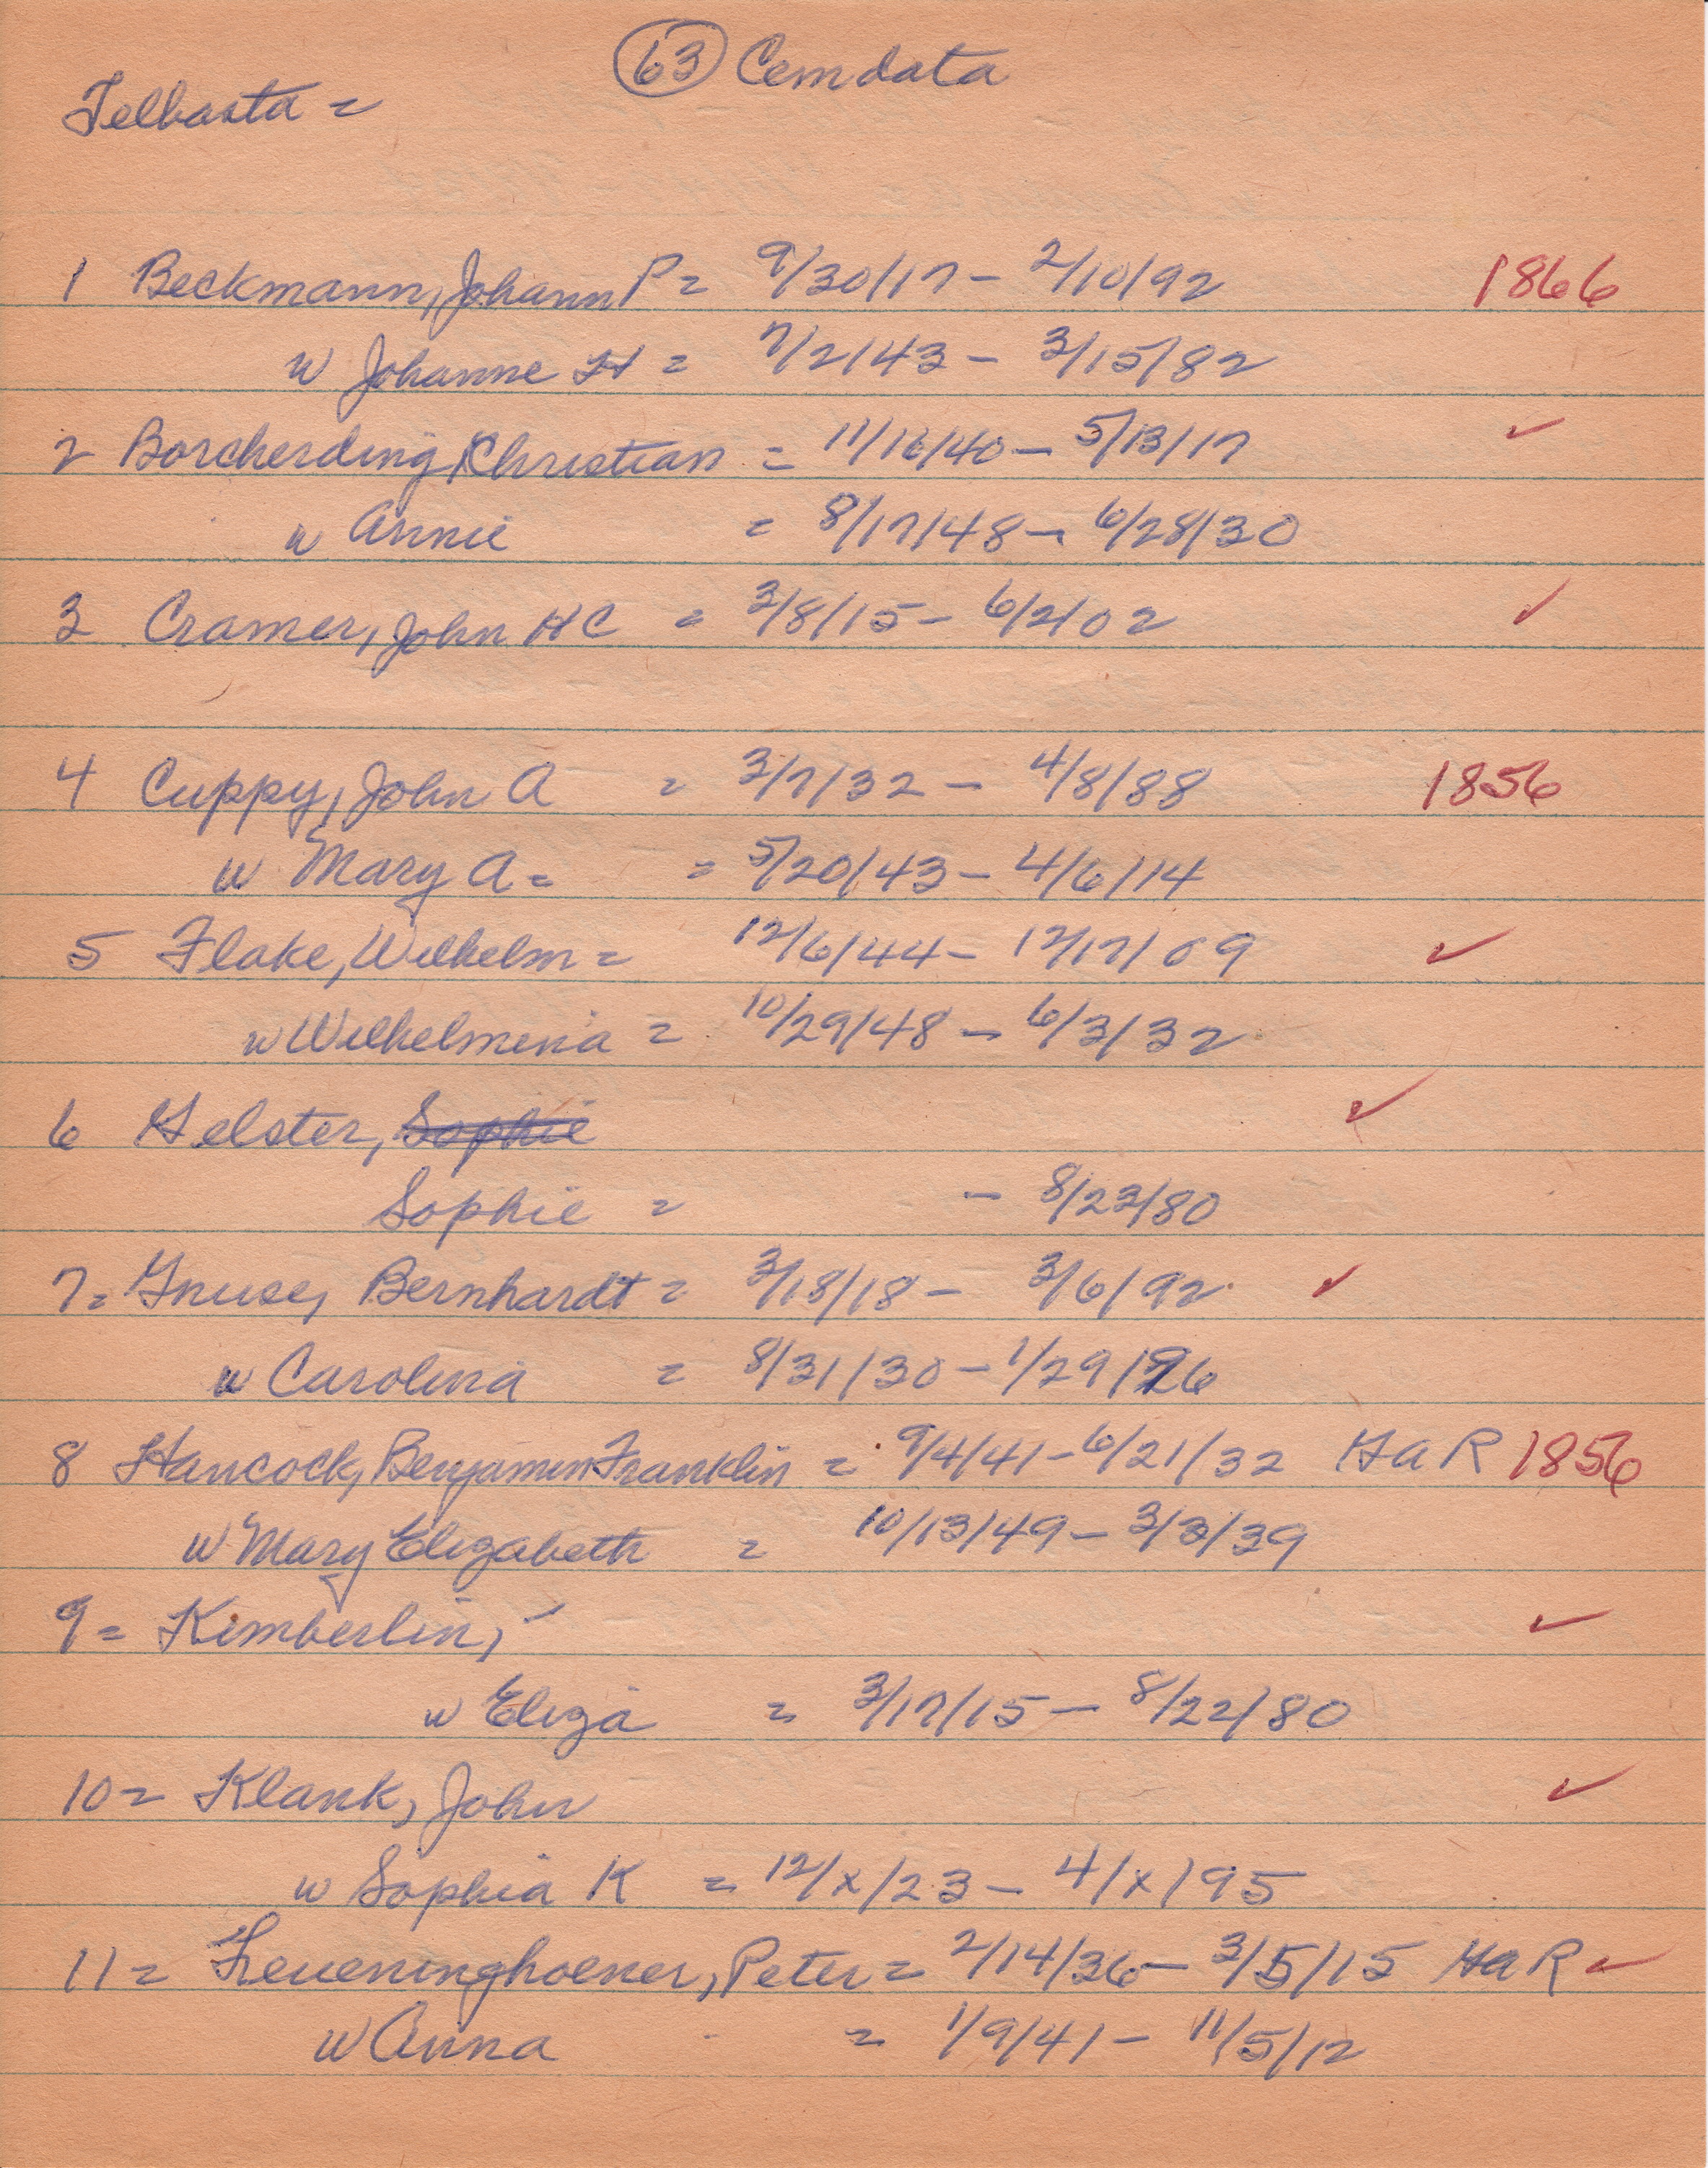 63 Cemdata
Telbasta =
1 Beckmann, Johann P = 9/30/17 - 2/10/92 1866
w Johanne H = 7/2/43 - 3/15/82
2 Borcherding, Christian = 11/16/40 - 5/13/17 ✓
w Annie = 8/17/48 - 6/28/30
3 Cramer, John H C = 3/8/15 - 6/2/02 ✓
4 Cuppy, John A = 3/7/32 - 4/8/88 1856
w Mary A = = 5/20/43 - 4/6/14
5 Flake, Wilhelm = 12/6/44 - 12/17/09 ✓
w Wilhelmenia = 10/29/48 - 6/3/32
6 Gelster, Sophie ✓
Sophie = - 8/23/80
7 = Gnuse, Bernhardt = 3/18/18 - 3/6/92 ✓
w Carolina = 8/31/30 - 1/29/26
8 Hancock, Benjamin Franklin = 9/4/41 - 6/21/32 H a R 1856
w Mary Elizabeth = 10/13/49 - 3/3/39
9 = Kimberlin, ✓
w Eliza = 3/17/15 - 8/22/80
10 = Klank, John ✓
w Sophia K = 12/x/23 - 4/x/95
11 = Leueninghoener, Peter = 2/14/36 - 3/5/15 H a R ✓
w Anna = 1/9/41 - 11/5/12